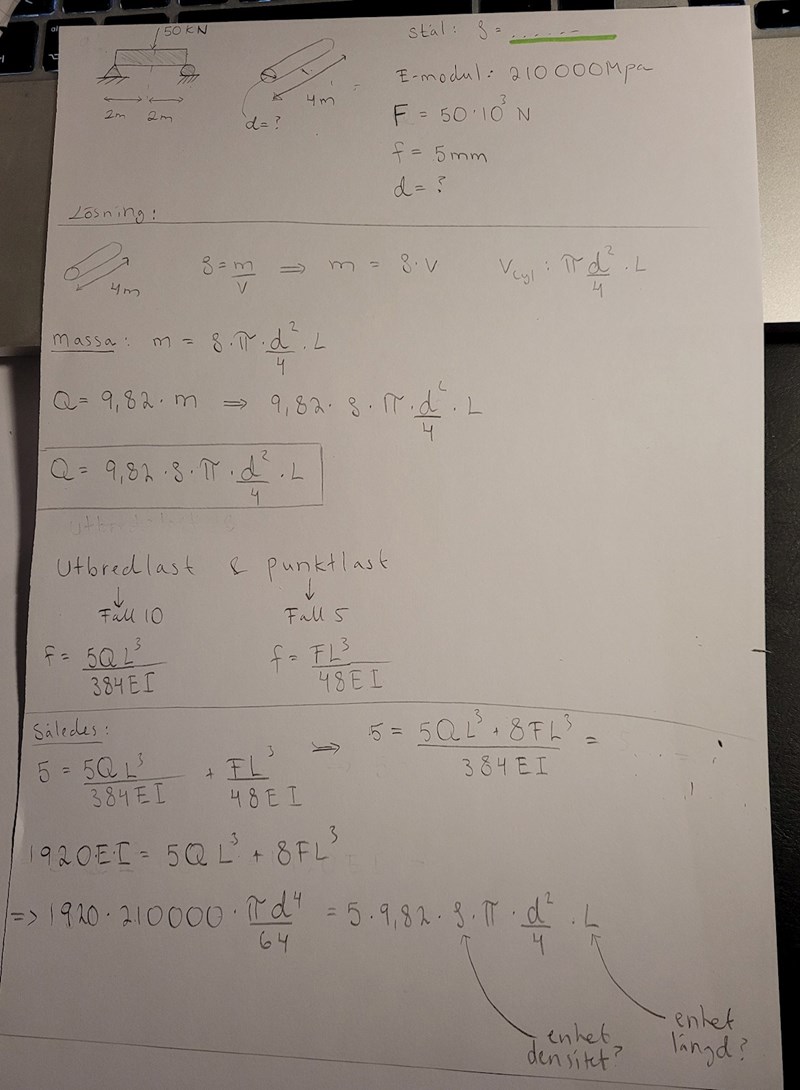 50 KN
2m 2m
d=?
4m
stål: ρ = ......
E-modul: 210 000Mpa
F = 50·10³ N
f = 5mm
d = ?
Lösning:
4m
ρ = m/V ⇒ m = ρ·V
Vcyl: π d²/4 · L
massa: m = ρ·π·d²/4·L
Q = 9,82·m ⇒ 9,82·ρ·π·d²/4·L
Q = 9,82·ρ·π·d²/4·L
Utbredlast & punktlast
↓ ↓
Fall 10 Fall 5
f = 5QL³/384EI f = FL³/48EI
Således:
5 = 5QL³/384EI + FL³/48EI ⇒ 5 = 5QL³ + 8FL³/384EI =
1920EI = 5QL³ + 8FL³
=> 1920·210000·πd⁴/64 = 5·9,82·ρ·π·d²/4·L
enhet densitet?
enhet längd?